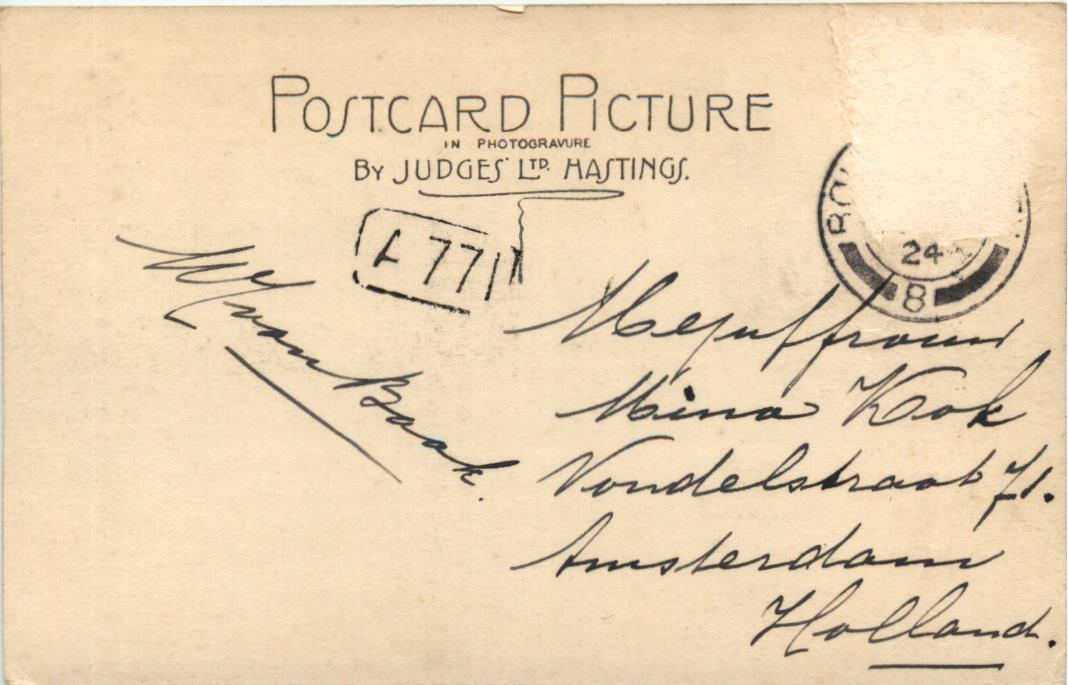 POSTCARD PICTURE
IN PHOTOGRAVURE
BY JUDGES' LTD. HASTINGS.
A 771
24
8
van Baak.
Mejuffrouw
Mina Kok
Vondelstraat 71.
Amsterdam
Holland.